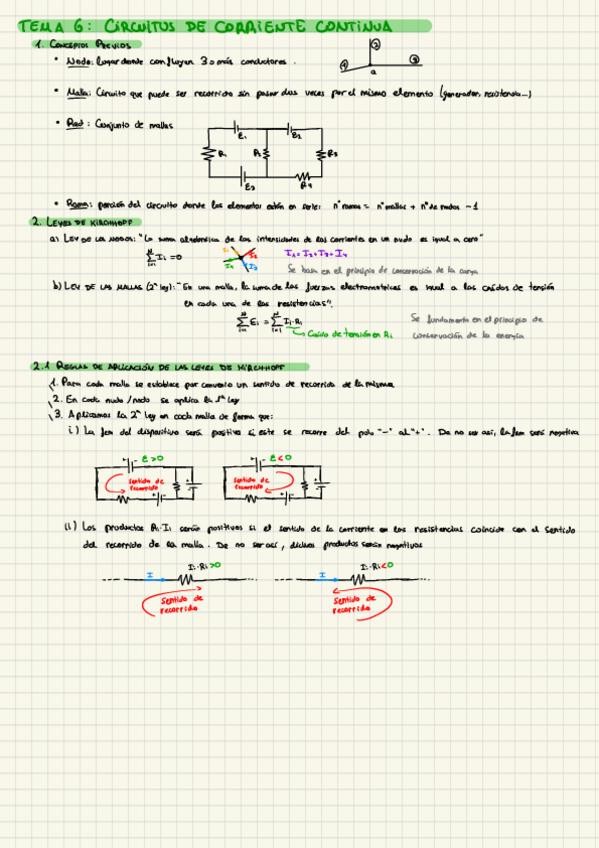 TEMA 6: CIRCUITOS DE CORRIENTE CONTINUA
1. CONCEPTOS PREVIOS
• Nodo: lugar donde confluyen 3 o más conductores.
• Malla: Circuito que puede ser recorrido sin pasar dos veces por el mismo elemento (generador, resistencia...)
• Red: Conjunto de mallas
• Rama: porción del circuito donde los elementos están en serie: nº ramas = nº mallas + nº de nodos - 1
2. LEYES DE KIRCHHOFF
a) LEY DE LOS NODOS: "La suma algebraica de las intensidades de las corrientes en un nudo es igual a cero"
Se basa en el principio de conservación de la carga
b) LEY DE LAS MALLAS (2ª ley): "En una malla, la suma de las fuerzas electromotrices es igual a las caídas de tensión
en cada una de las resistencias".
Caída de tensión en Ri
Se fundamenta en el principio de
conservación de la energía
2.1 REGLAS DE APLICACIÓN DE LAS LEYES DE KIRCHHOFF
1. Para cada malla se establece por convenio un sentido de recorrido de la misma
2. En cada nudo/nodo se aplica la 1ª ley
3. Aplicamos la 2ª ley en cada malla de forma que:
i) La fem del dispositivo será positiva si este se recorre del polo "-" al "+". De no ser así, la fem será negativa
ε>0
ε<0
Sentido de
recorrido
Sentido de
recorrido
ii) Los productos Ri·Ii serán positivos si el sentido de la corriente en las resistencias coincide con el sentido
del recorrido de la malla. De no ser así, dichos productos serán negativos
I
Ii·Ri>0
I
Ii·Ri<0
Sentido de
recorrido
Sentido de
recorrido